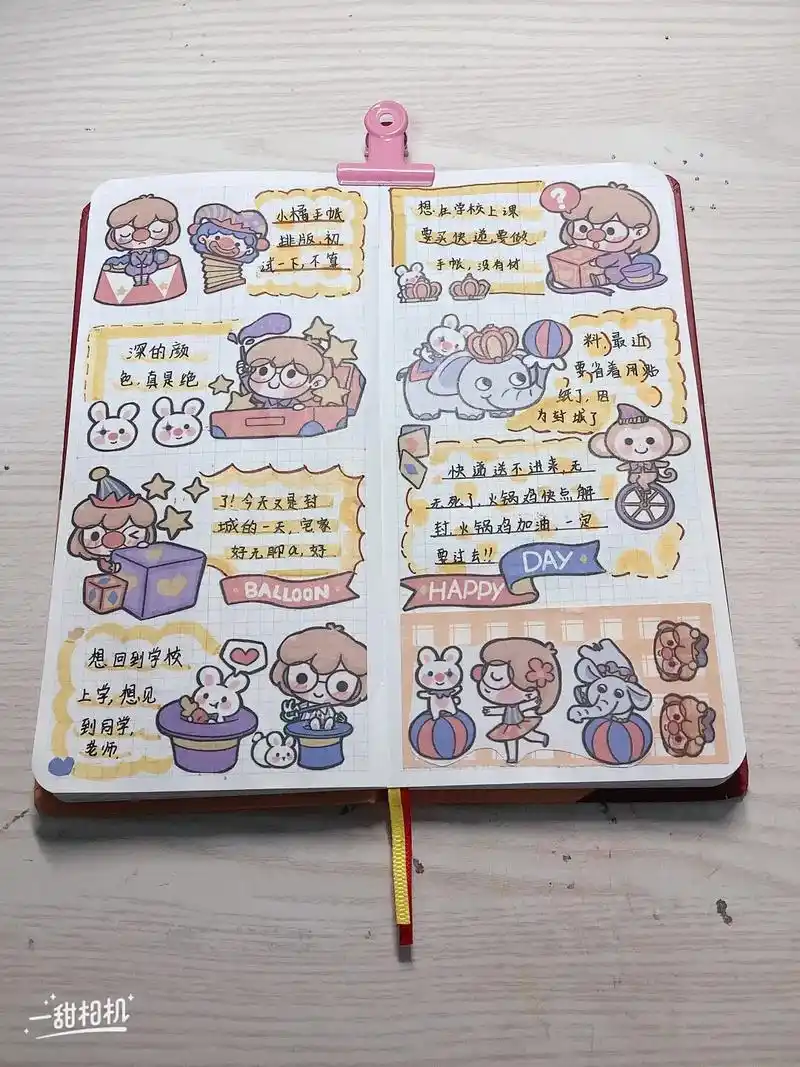 小橘手帐
排版，初
试一下，不算
深的颜
色，真是绝
了！今天又是封
城的一天，宅家
好无聊a，好
BALLOON
想回到学校
上学，想见
到同学，
老师．
?
想在学校上课
要买快递，要做
手帐，没有材
料，最近
要省着用贴
纸了，因
为封城了
快递送不进来，无
无死了，火锅鸡快点解
封，火锅鸡加油，一定
要过去!!
HAPPY DAY
一甜相机